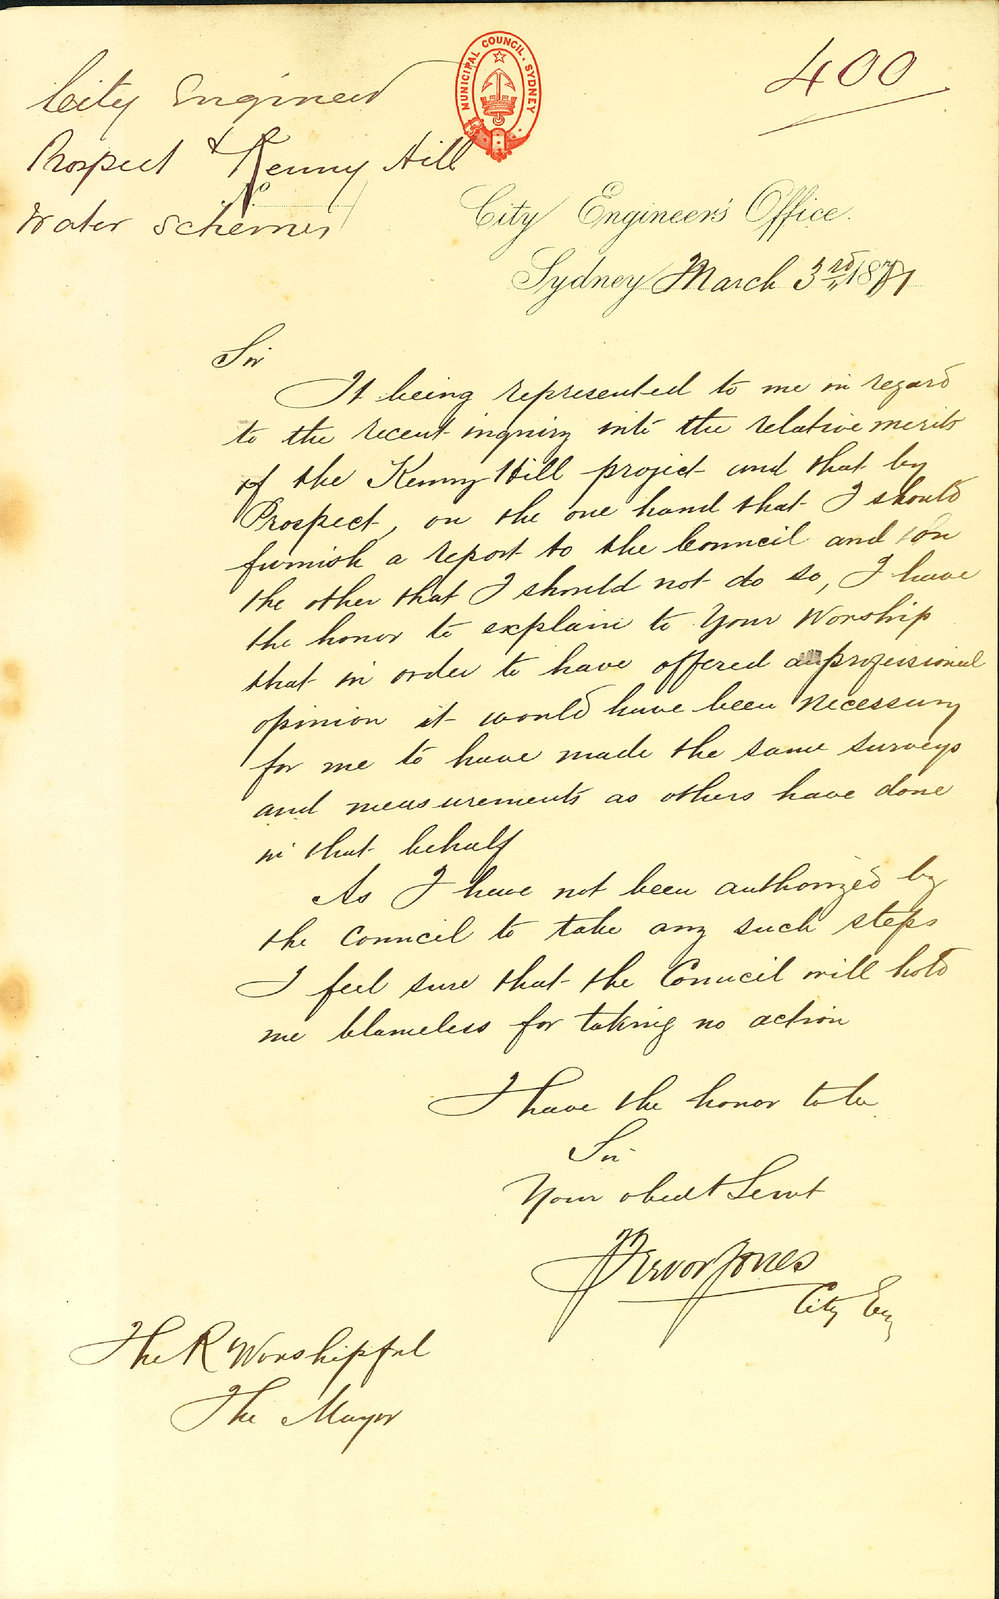 City Engineer
Prospect & Kenny Hill
Water Schemes
No
MUNICIPAL COUNCIL, SYDNEY
400
City Engineer's Office.
Sydney March 3rd 18
Sir
It being represented to me in regard
to the recent inquiry into the relative merits
of the Kenny Hill project and that by
Prospect, on the one hand that I should
furnish a report to the Council and on
the other that I should not do so, I have
the honor to explain to Your Worship
that in order to have offered a professional
opinion it would have been necessary
for me to have made the same surveys
and measurements as others have done
in that behalf
As I have not been authorized by
the Council to take any such steps
I feel sure that the Council will hold
me blameless for taking no action
I have the honor to be
Sir
Your obedt Servt
Trevor Jones
City Eng
The R Worshipful
The Mayor